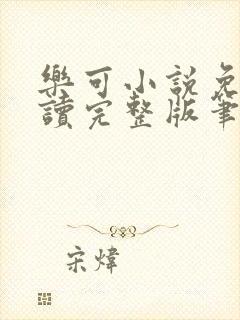 樂可小說免
讀完整版筆
宋煒